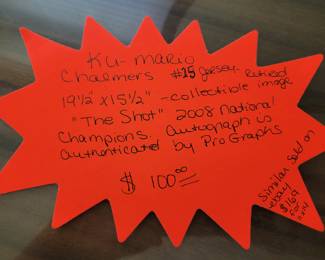 Ku-Mario
Chalmers #15 jersey-retired
19½" x 15½" -collectible image
"The Shot" 2008 National
Champions. Autograph is
authenticated by ProGraphs
$ 100⁰⁰
Similar sold on
ebay
$169
for